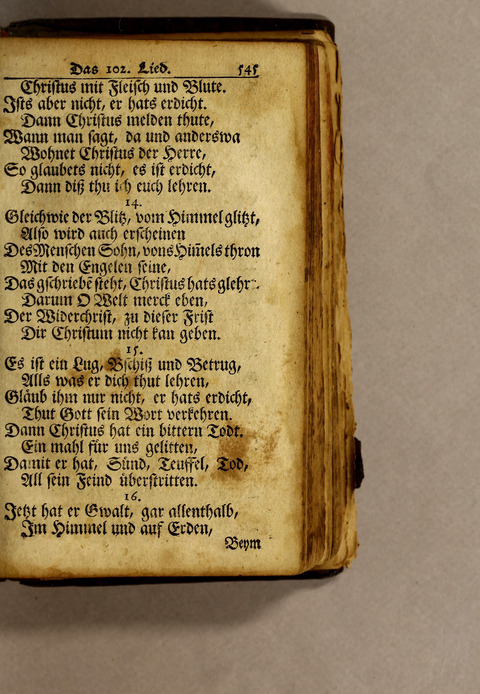 Das 102. Lied. 545
Christus mit Fleisch und Blute.
Ists aber nicht, er hats erdicht.
Dann Christus melden thute,
Wann man sagt, da und anderswa
Wohnet Christus der Herre,
So glaubets nicht, es ist erdicht,
Dann diß thu ich euch lehren.
14.
Gleichwie der Blitz, vom Himmel glitzt,
Also wird auch erscheinen
Des Menschen Sohn, vons Him̄els thron
Mit den Engelen seine,
Das gschriebē steht, Christus hats glehrt.
Darum O Welt merck eben,
Der Widerchrist, zu dieser Frist
Dir Christum nicht kan geben.
15.
Es ist ein Lug, Bschiß und Betrug,
Alls was er dich thut lehren,
Gläub ihm nur nicht, er hats erdicht,
Thut Gott sein Wort verkehren.
Dann Christus hat ein bittern Todt.
Ein mahl für uns gelitten,
Damit er hat, Sünd, Teuffel, Tod,
All sein Feind überstritten.
16.
Jetzt hat er Gwalt, gar allenthalb,
Im Himmel und auf Erden,
Beym